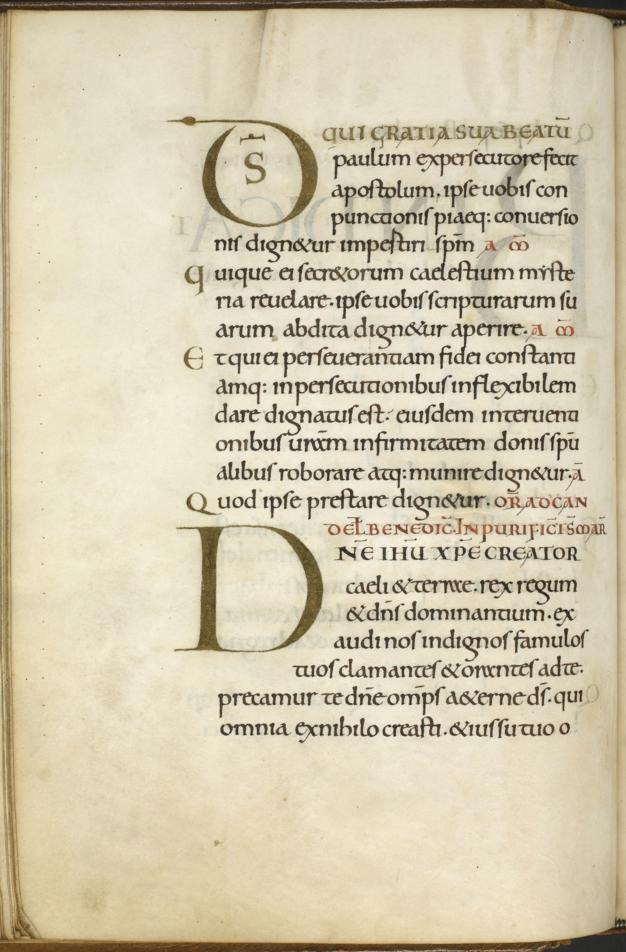 D̅S̅ QUI GRATIA SUA BEATŪ
paulum expersecutore fecit
apostolum. ipse uobis con
punctionis piaeq: conuersio
nis dign&ur impertiri sp̅m a̅ m̅
Quique ei secr&orum caelestium myste
ria reuelare. ipse uobis scripturarum su
arum abdita dign&ur aperire. a̅ m̅
Et qui ei perseuerantiam fidei constanti
amq: in persecutionibus inflexibilem
dare dignatus est. eiusdem interuenti
onibus ur̅am infirmitatem donis sp̅u
alibus roborare atq: munire dign&ur. a̅
Quod ipse prestare dign&ur. OR̅ AD CAN
DEL̅ BENEDIC̅. IN PURIFIC̅ S̅ MAR
DN̅E IHU XPE CREATOR
caeli & terrae. rex regum
& dn̅s dominantium. ex
audi nos indignos famulos
tuos clamantes & orantes ad te.
precamur te dn̅e om̅ps a&erne ds̅. qui
omnia ex nihilo creasti. & iussu tuo o